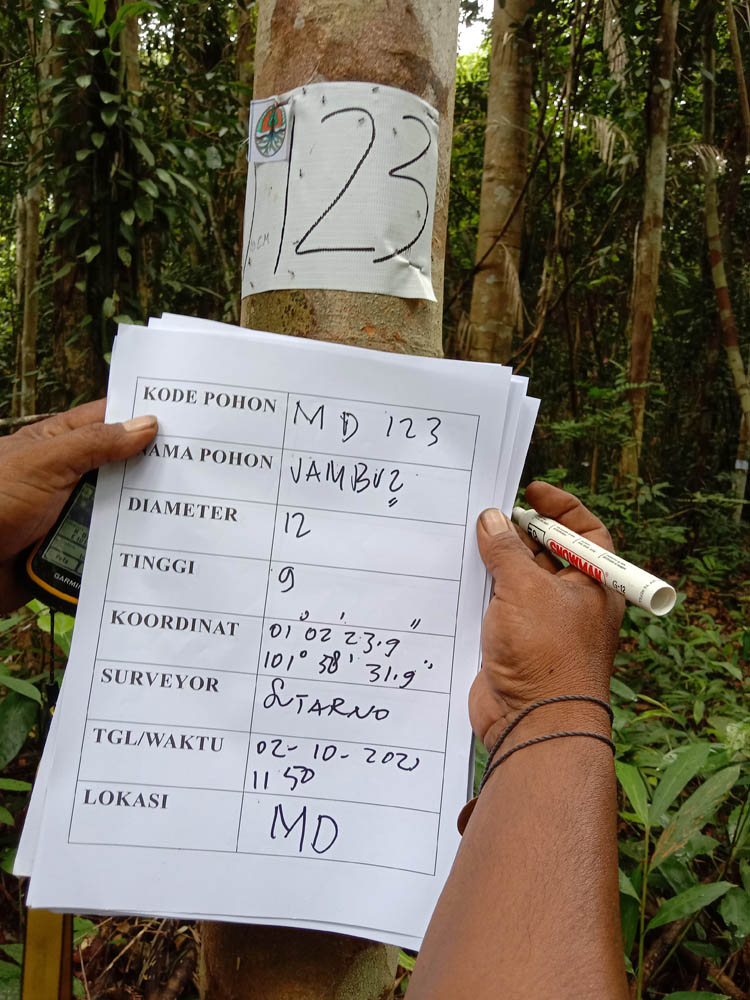 123
KODE POHON MD 123
NAMA POHON JAMBU2
DIAMETER 12
TINGGI 9
KOORDINAT 01° 02' 23.9"
101° 38' 31.9"
SURVEYOR SUTARNO
TGL/WAKTU 02-10-2021
11 50
LOKASI MD
GARMIN
SNOWMAN
G-12